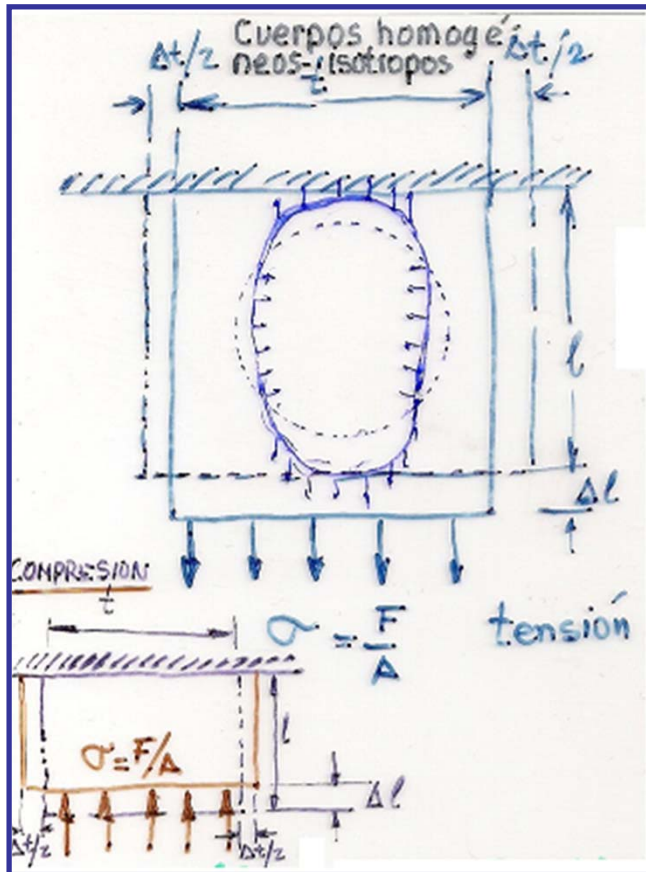 Cuerpos homogé-
neos-isótropos
Δt/2
t
Δt/2
l
Δl
COMPRESION
t
σ = F/A
tensión
l
σ = F/A
Δl
Δt/2
Δt/2